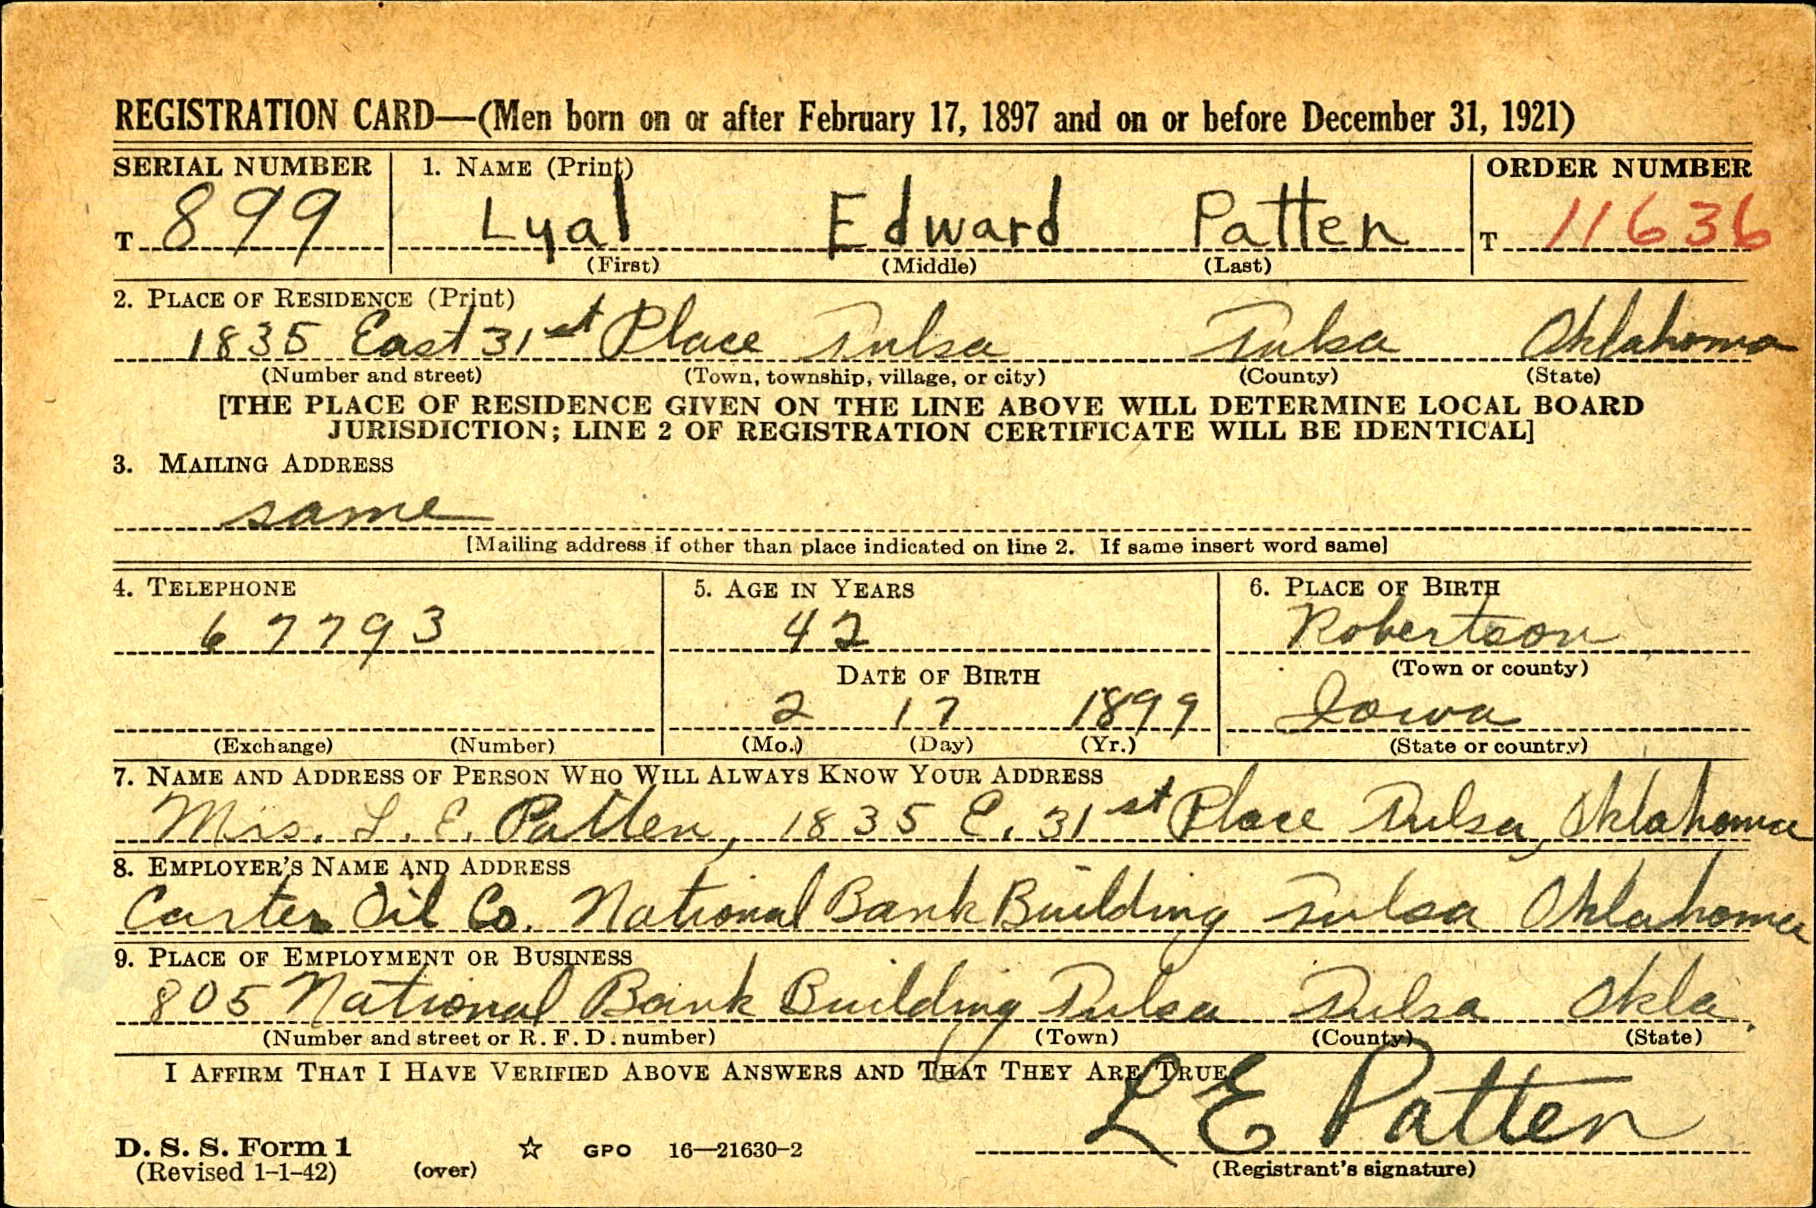 REGISTRATION CARD—(Men born on or after February 17, 1897 and on or before December 31, 1921)
SERIAL NUMBER 1. NAME (Print) ORDER NUMBER
T 899 Lyal Edward Patten T 11636
(First) (Middle) (Last)
2. PLACE OF RESIDENCE (Print)
1835 East 31st Place Tulsa Tulsa Oklahoma
(Number and street) (Town, township, village, or city) (County) (State)
[THE PLACE OF RESIDENCE GIVEN ON THE LINE ABOVE WILL DETERMINE LOCAL BOARD
JURISDICTION; LINE 2 OF REGISTRATION CERTIFICATE WILL BE IDENTICAL]
3. MAILING ADDRESS
same
[Mailing address if other than place indicated on line 2. If same insert word same]
4. TELEPHONE 5. AGE IN YEARS 6. PLACE OF BIRTH
67793 42 Robertson
DATE OF BIRTH (Town or county)
2 17 1899 Iowa
(Exchange) (Number) (Mo.) (Day) (Yr.) (State or country)
7. NAME AND ADDRESS OF PERSON WHO WILL ALWAYS KNOW YOUR ADDRESS
Mrs. L. E. Patten, 1835 E. 31st Place Tulsa, Oklahoma
8. EMPLOYER'S NAME AND ADDRESS
Carter Oil Co. National Bank Building Tulsa Oklahoma
9. PLACE OF EMPLOYMENT OR BUSINESS
805 National Bank Building Tulsa Tulsa Okla.
(Number and street or R. F. D. number) (Town) (County) (State)
I AFFIRM THAT I HAVE VERIFIED ABOVE ANSWERS AND THAT THEY ARE TRUE
L E Patten
D. S. S. Form 1 ☆ GPO 16—21630-2
(Revised 1-1-42) (over) (Registrant's signature)